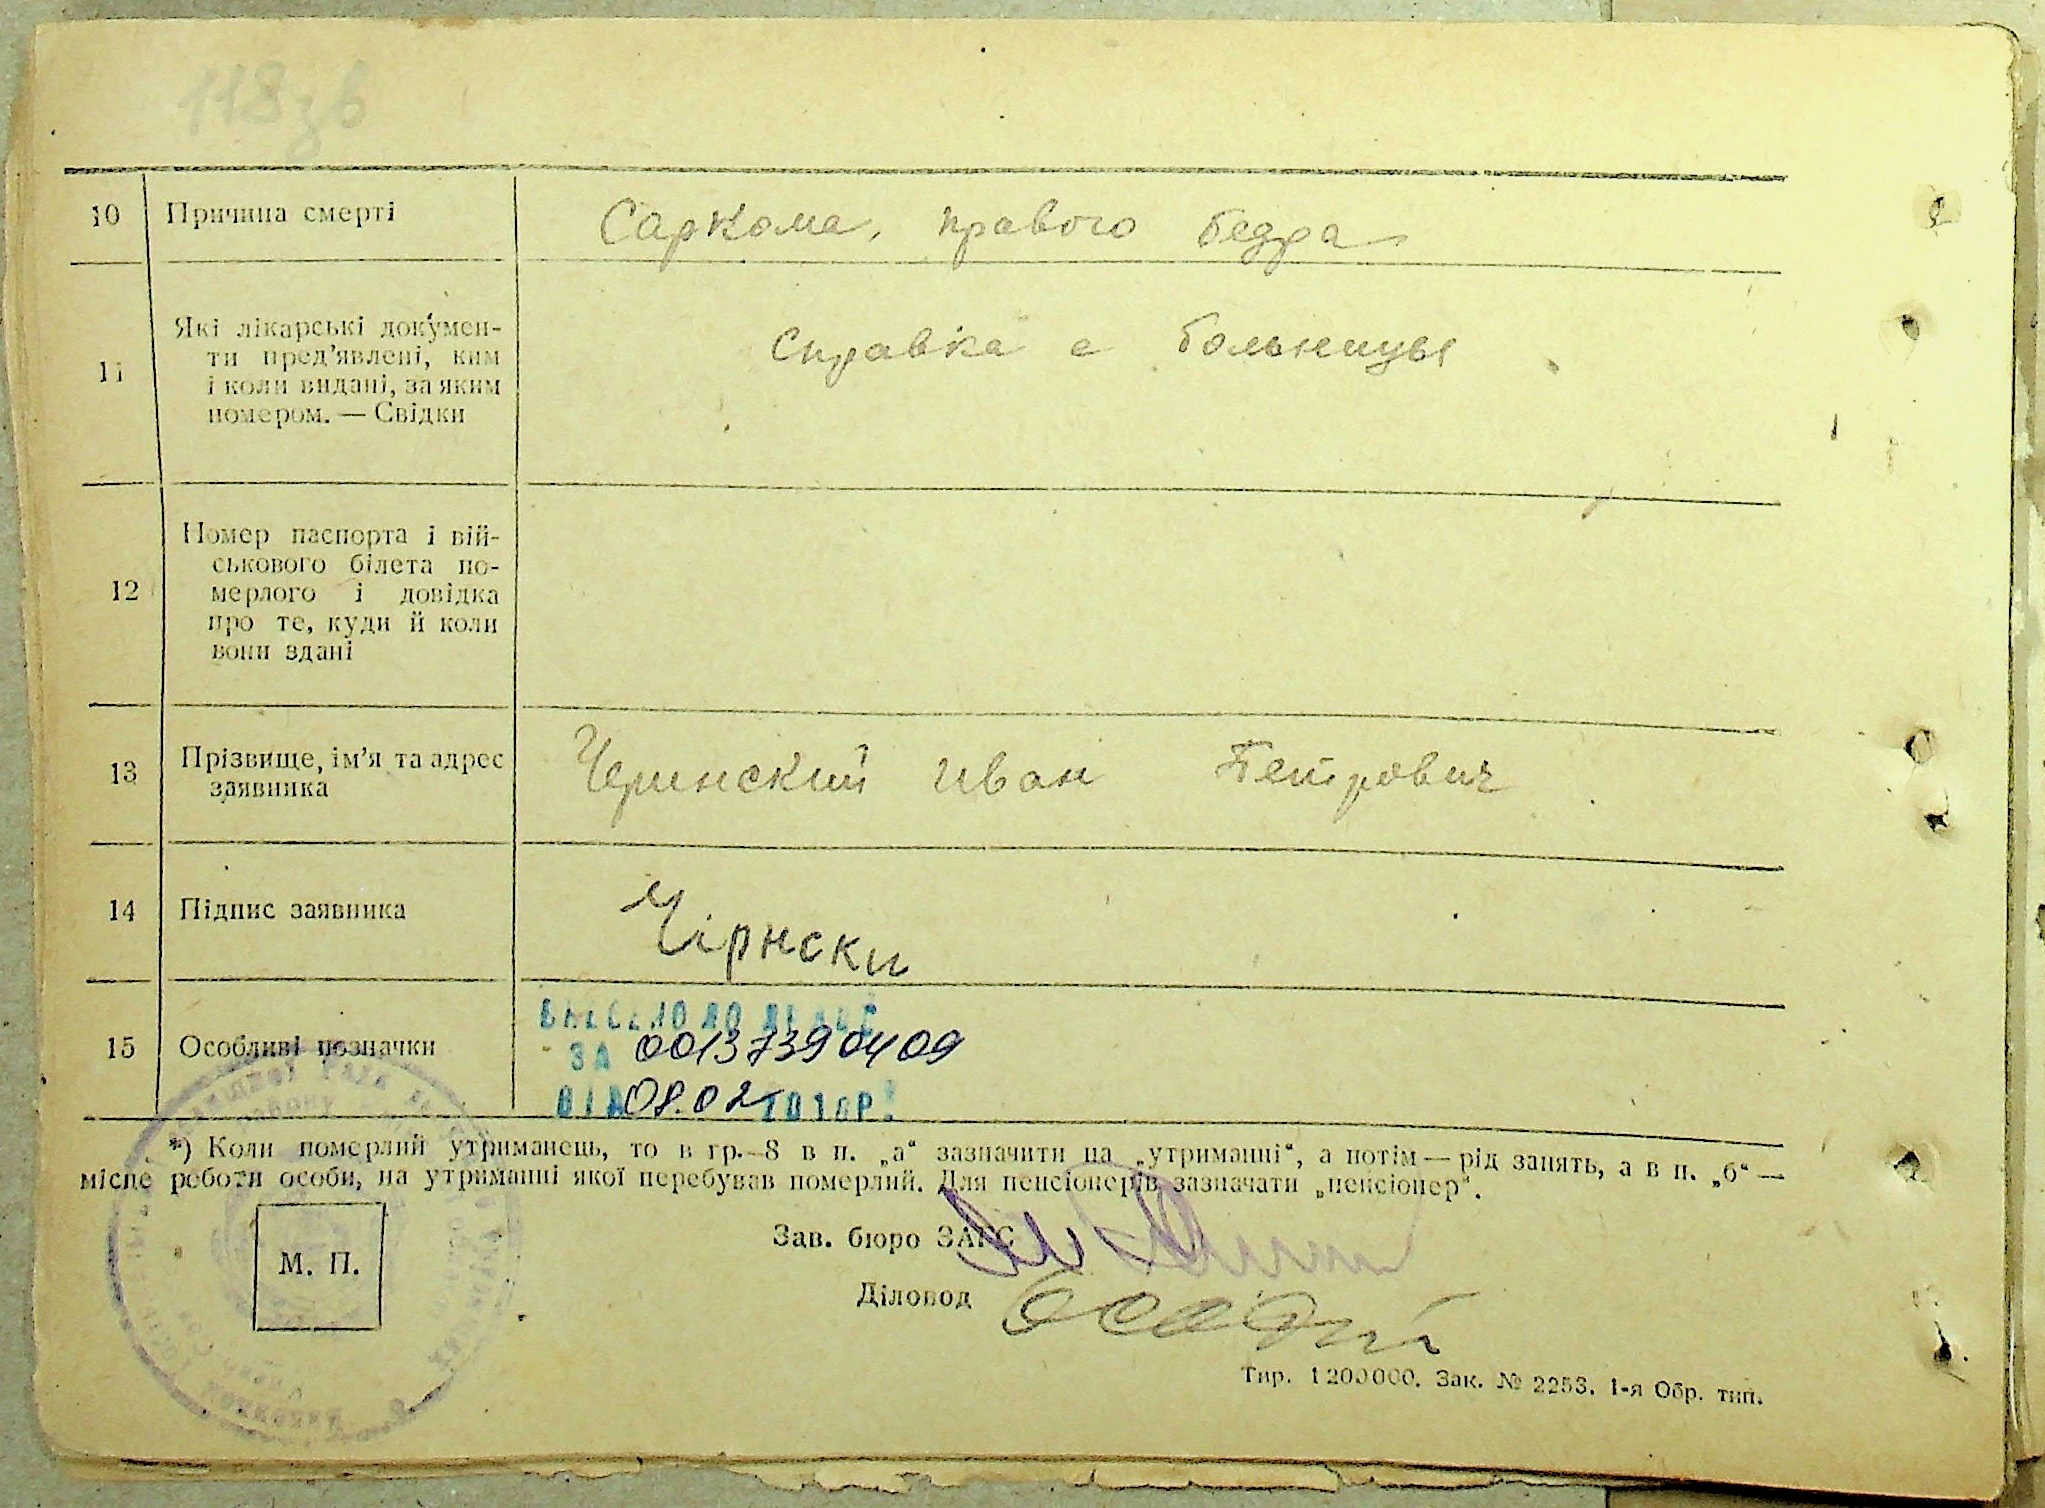 118зв
10 Причина смерті Саркома, правого бедра
11 Які лікарські докумен-
ти пред’явлені, ким
і коли видані, за яким
номером. — Свідки
Справка с больницы
12 Номер паспорта і вій-
ськового білета по-
мерлого і довідка
про те, куди й коли
вони здані
13 Прізвище, ім’я та адрес
заявника
Черинский Иван Петрович
14 Підпис заявника Чірнски
15 Особливі позначки
ВНЕСЕНО ДО
ЗА 00137390409
ВІД 08.02 Р.
*) Коли померлий утриманець, то в гр. 8 в п. „а“ зазначити на „утриманні“, а потім — рід занять, а в п. „б“ —
місце роботи особи, на утриманні якої перебував померлий. Для пенсіонерів зазначати „пенсіонер“.
М. П.
Зав. бюро ЗАГС
Діловод
Тир. 1200000. Зак. № 2253. 1-я Обр. тип.